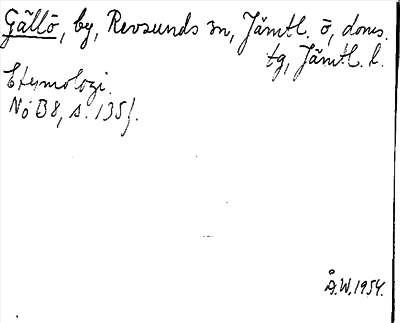 Gällö, by, Revsunds sn, Jämtl. ö, doms.
tg, Jämtl. l.
Etymologi.
NoB 8, s. 135 f.
Å.W. 1954.